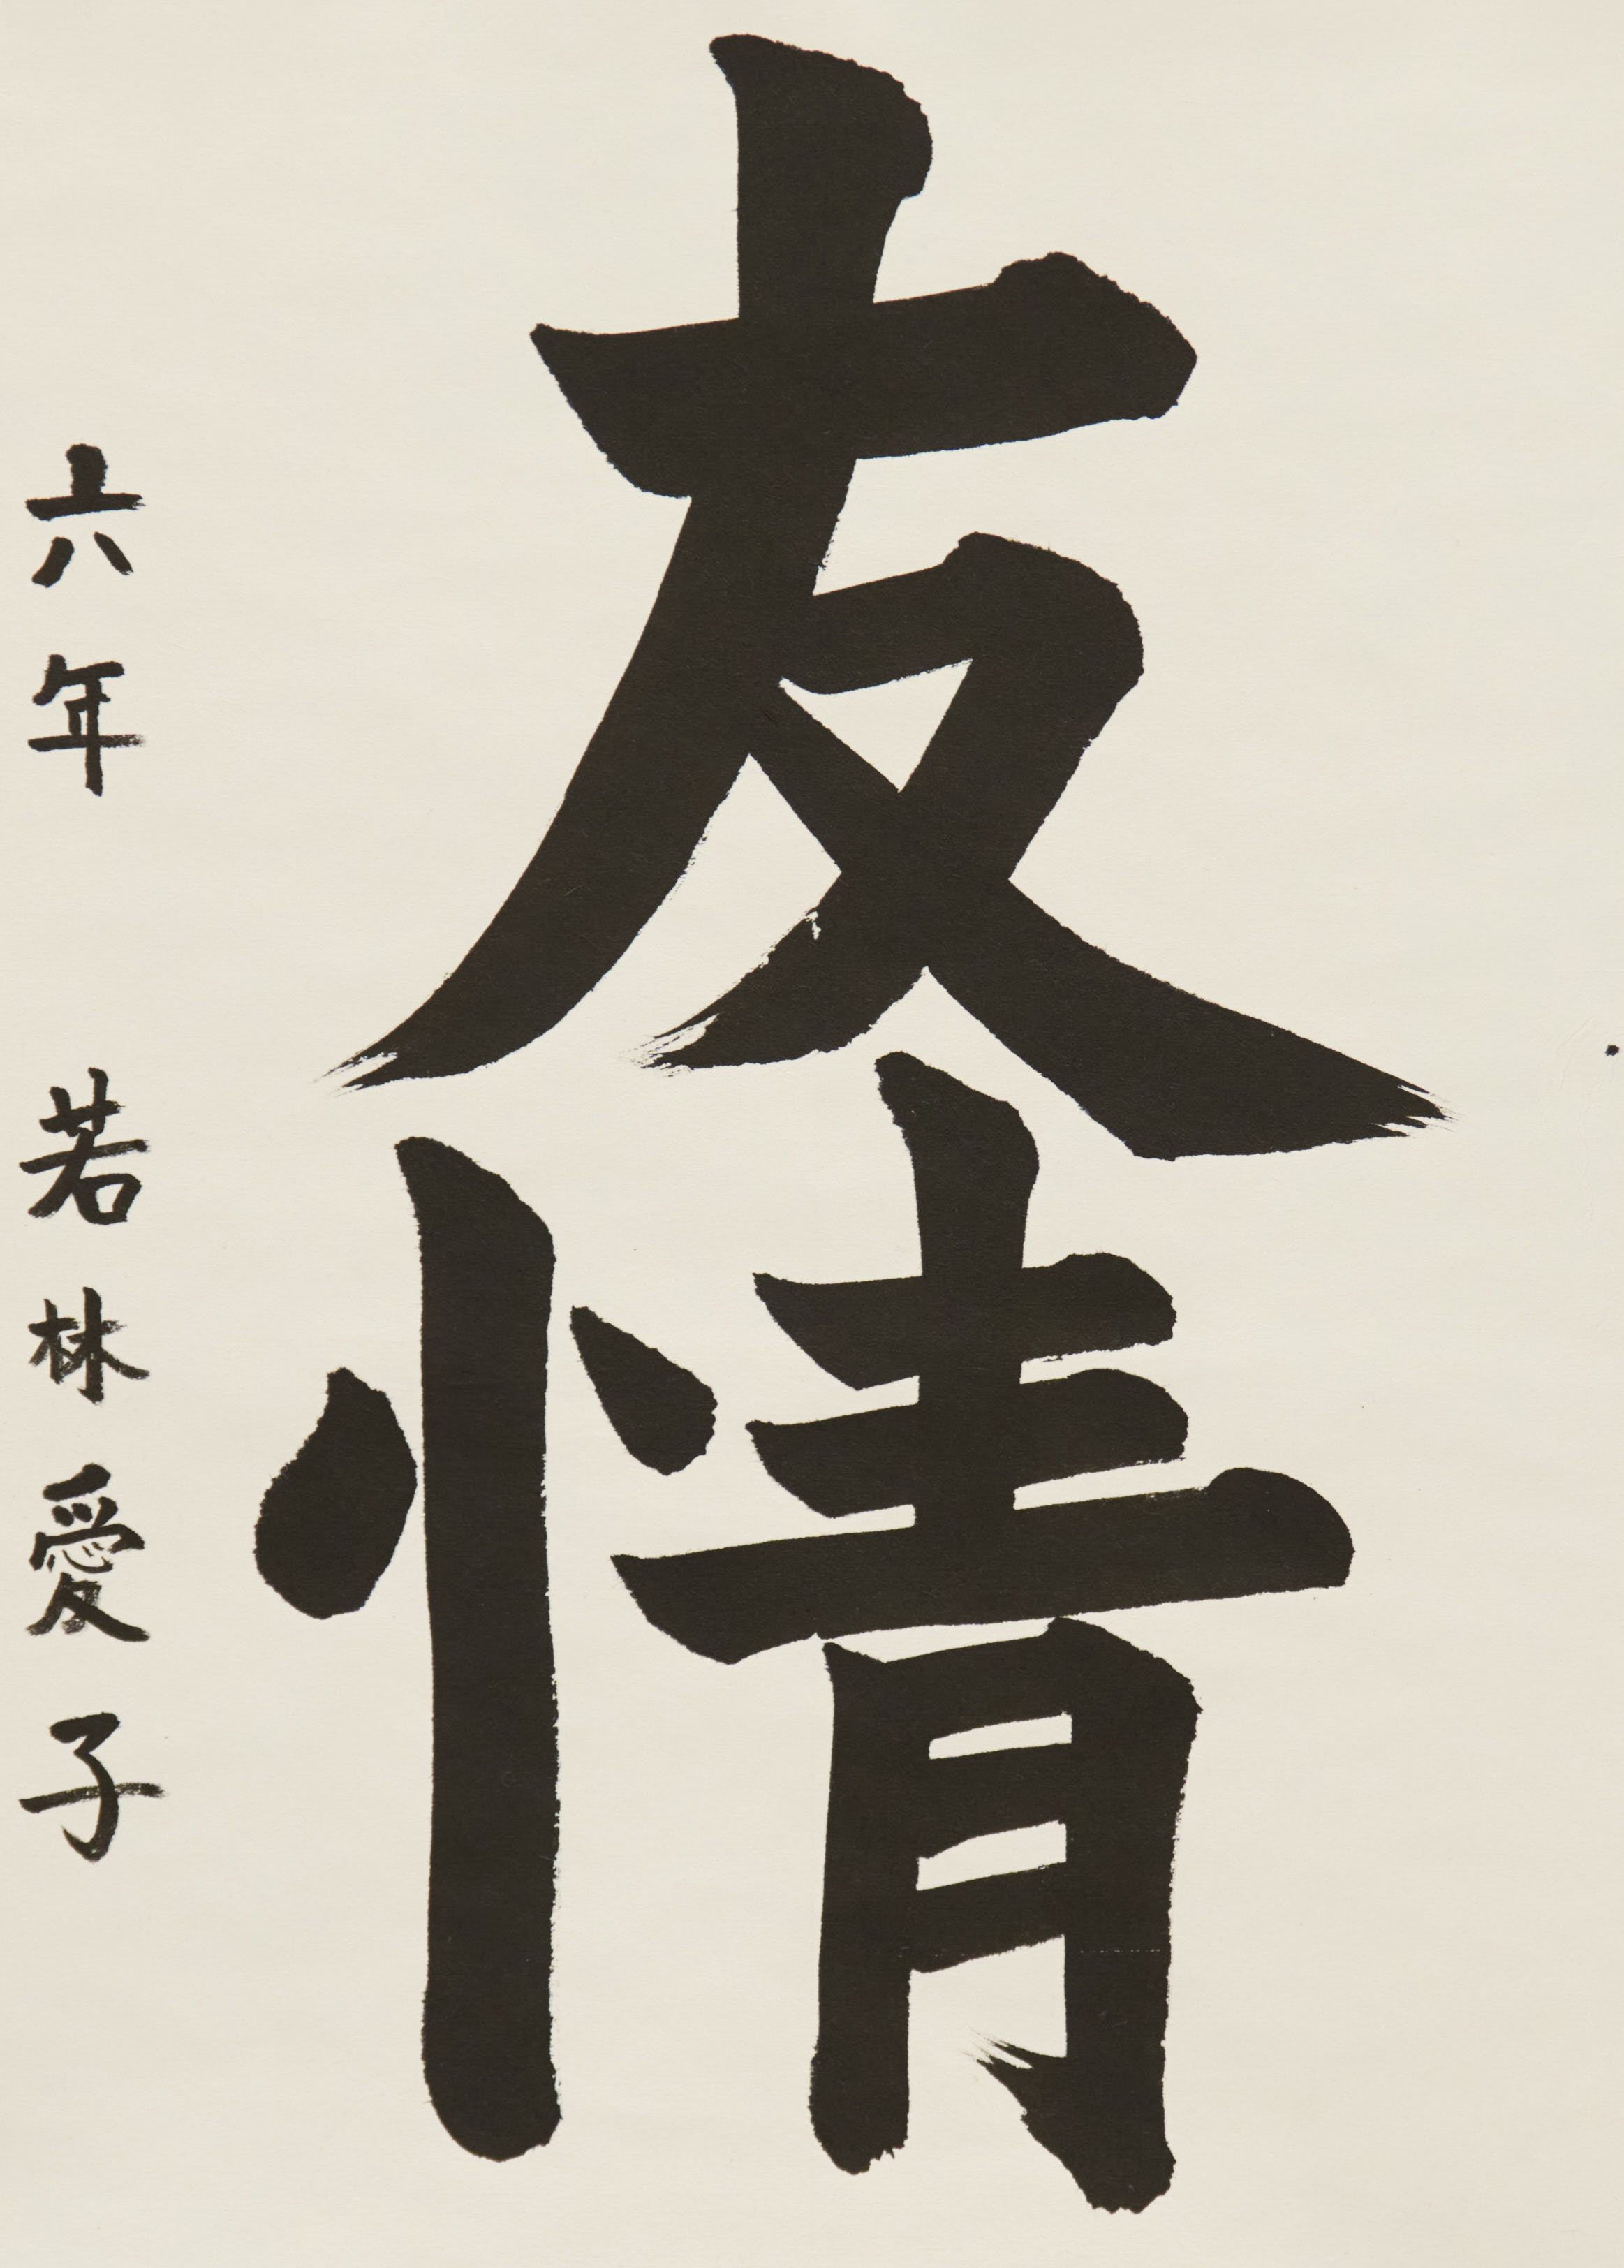 友情
六年 若林愛子